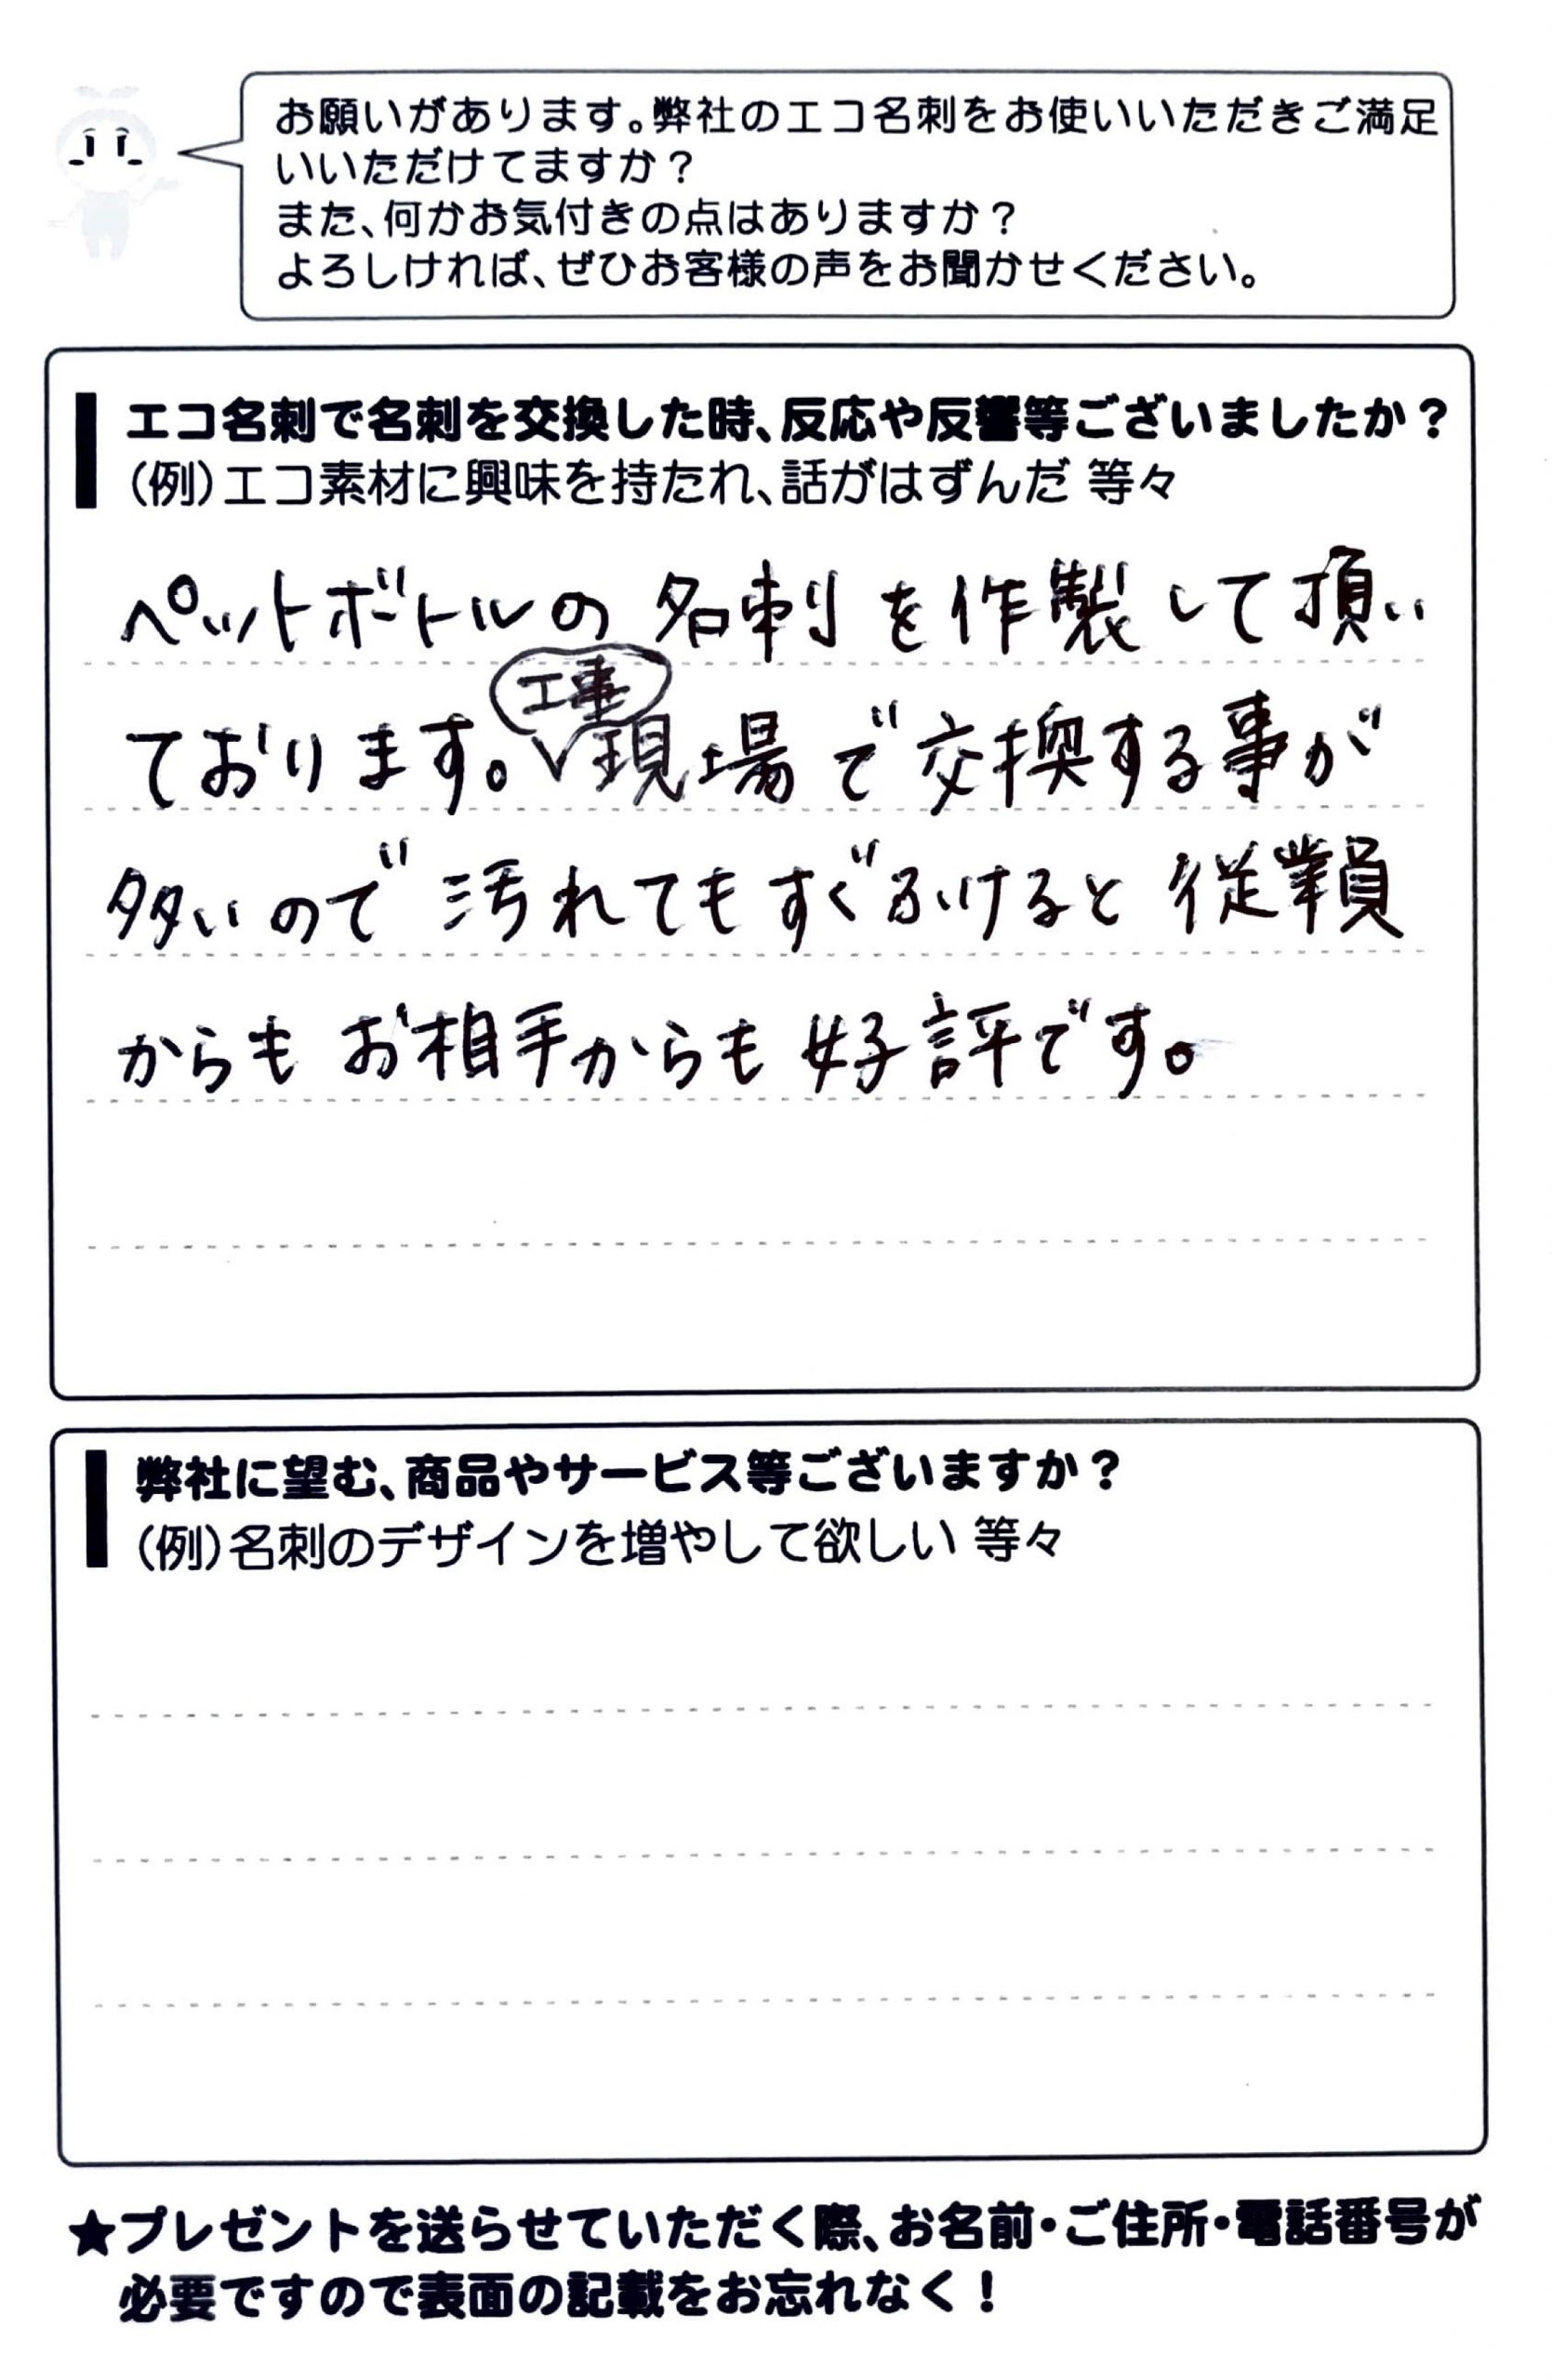 お願いがあります。弊社のエコ名刺をお使いいただきご満足
いいただけてますか？
また、何かお気付きの点はありますか？
よろしければ、ぜひお客様の声をお聞かせください。
エコ名刺で名刺を交換した時、反応や反響等ございましたか？
（例）エコ素材に興味を持たれ、話がはずんだ 等々
ペットボトルの名刺を作製して頂い
工事
ております。現場で交換する事が
多いので汚れてもすぐふけると従業員
からもお相手からも好評です。
弊社に望む、商品やサービス等ございますか？
（例）名刺のデザインを増やして欲しい 等々
★プレゼントを送らせていただく際、お名前・ご住所・電話番号が
必要ですので表面の記載をお忘れなく！